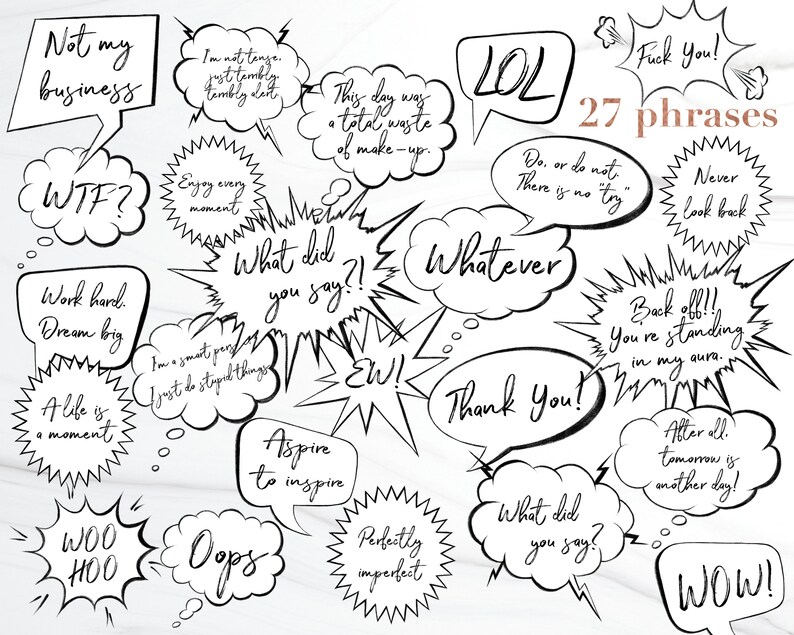 Not my
business
I'm not tense,
just terribly
terribly alert
This day was
a total waste
of make-up.
LOL
Fuck You!
27 phrases
WTF?
Enjoy every
moment
Do, or do not.
There is no "try"
Never
look back
What did
you say?!
Whatever
Work hard.
Dream big
I'm a smart pers
I just do stupid things
EW!
Back off!!
You're standing
in my aura.
A life is
a moment
Thank You!
Aspire
to inspire
After all,
tomorrow is
another day!
WOO
HOO
Oops
Perfectly
imperfect
What did
you say?
WOW!